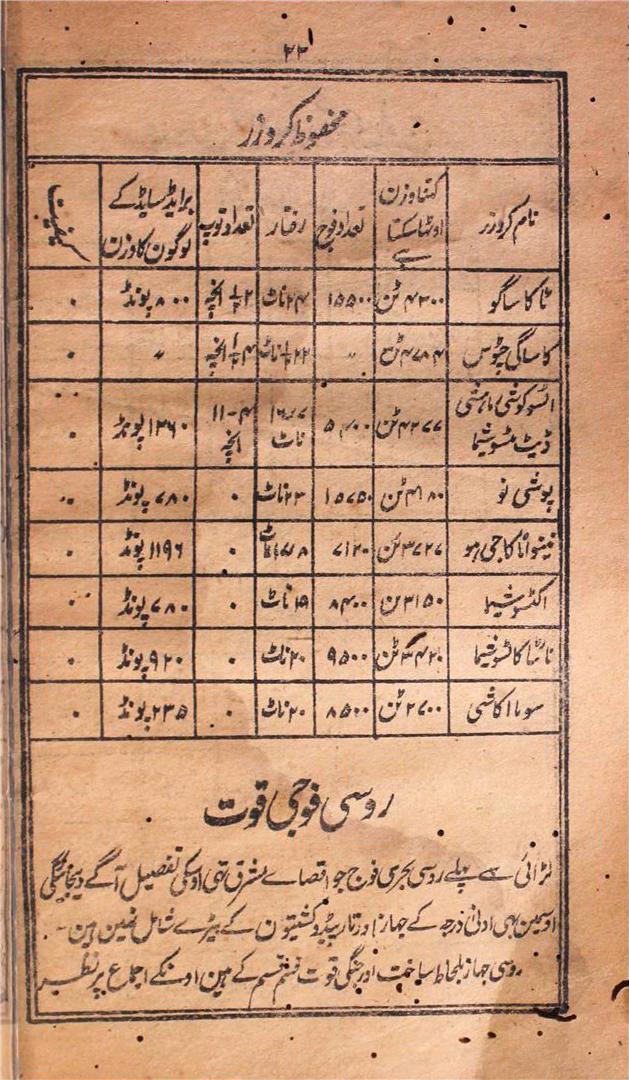 ۲۲
محفوظ کروزر
نام کروزر | کتنا وزن اوٹھا سکتا ہے | تعداد فوج | رفتار | تعداد توپ | براڈ سایڈ کے گولون کا وزن | کیفیت
ٹاکاساگو | ۴۳۰۰ ٹن | ۱۵۵۰۰ | ۲۴ ناٹ | | ۸۰۰ پونڈ | ۰
کاساگی چٹوس | ۴۷۸۴ ٹن | 〃 | | | 〃 | ۰
| ۴۲۷۷ ٹن | ۵۴۰۰ | ۱۶۷۷ ناٹ | ۴-۱۱ انچہ | ۱۲۶۰ پونڈ | ۰
یوشی نو | ۴۱۸۰ ٹن | ۱۵۷۵۰ | ۲۳ ناٹ | ۰ | ۷۸۰ پونڈ | ۰
| ۳۷۲۷ ٹن | ۷۱۲۰ | | ۰ | ۱۱۹۶ پونڈ | ۰
اکٹسوشیما | ۳۱۵۰ ٹن | ۸۴۰۰ | ۱۹ ناٹ | ۰ | ۷۸۰ پونڈ | ۰
| ۳۴۲۰ ٹن | ۹۵۰۰ | ۲۰ ناٹ | ۰ | ۹۲۰ پونڈ | ۰
سوما اکاشی | ۲۷۰۰ ٹن | ۸۵۰۰ | ۲۰ ناٹ | ۰ | ۲۳۵ پونڈ | ۰
روسی فوجی قوت
لڑائی سے پہلے روسی بحری فوج جو اقصاے مشرق تھی اوسکی تفصیل آگے دیجائیگی
اوسمین بھی ادنیٰ درجہ کے جہاز اور تارپیڈو کشتیون کے بیڑے شامل نہین ہین۔
روسی جہاز بلحاظ ساخت اور جنگی قوت قسم قسم کے ہین اونکے اجماع پر نظر